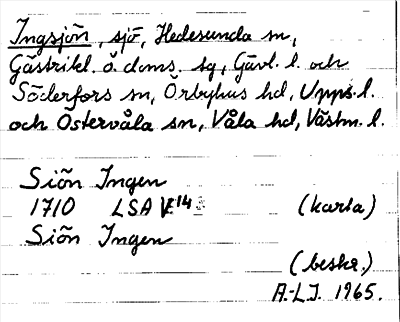 Ingsjön, sjö, Hedesunda sn,
Gästrikl. ö. doms. sg, Gävl. l. och
Söderfors sn, Örbyhus hd, Upps. l.
och Östervåla sn, Våla hd, Västm. l.
Siön Ingen
1710 LSA (karta)
Siön Ingen
(beskr.)
A.-L.J. 1965.